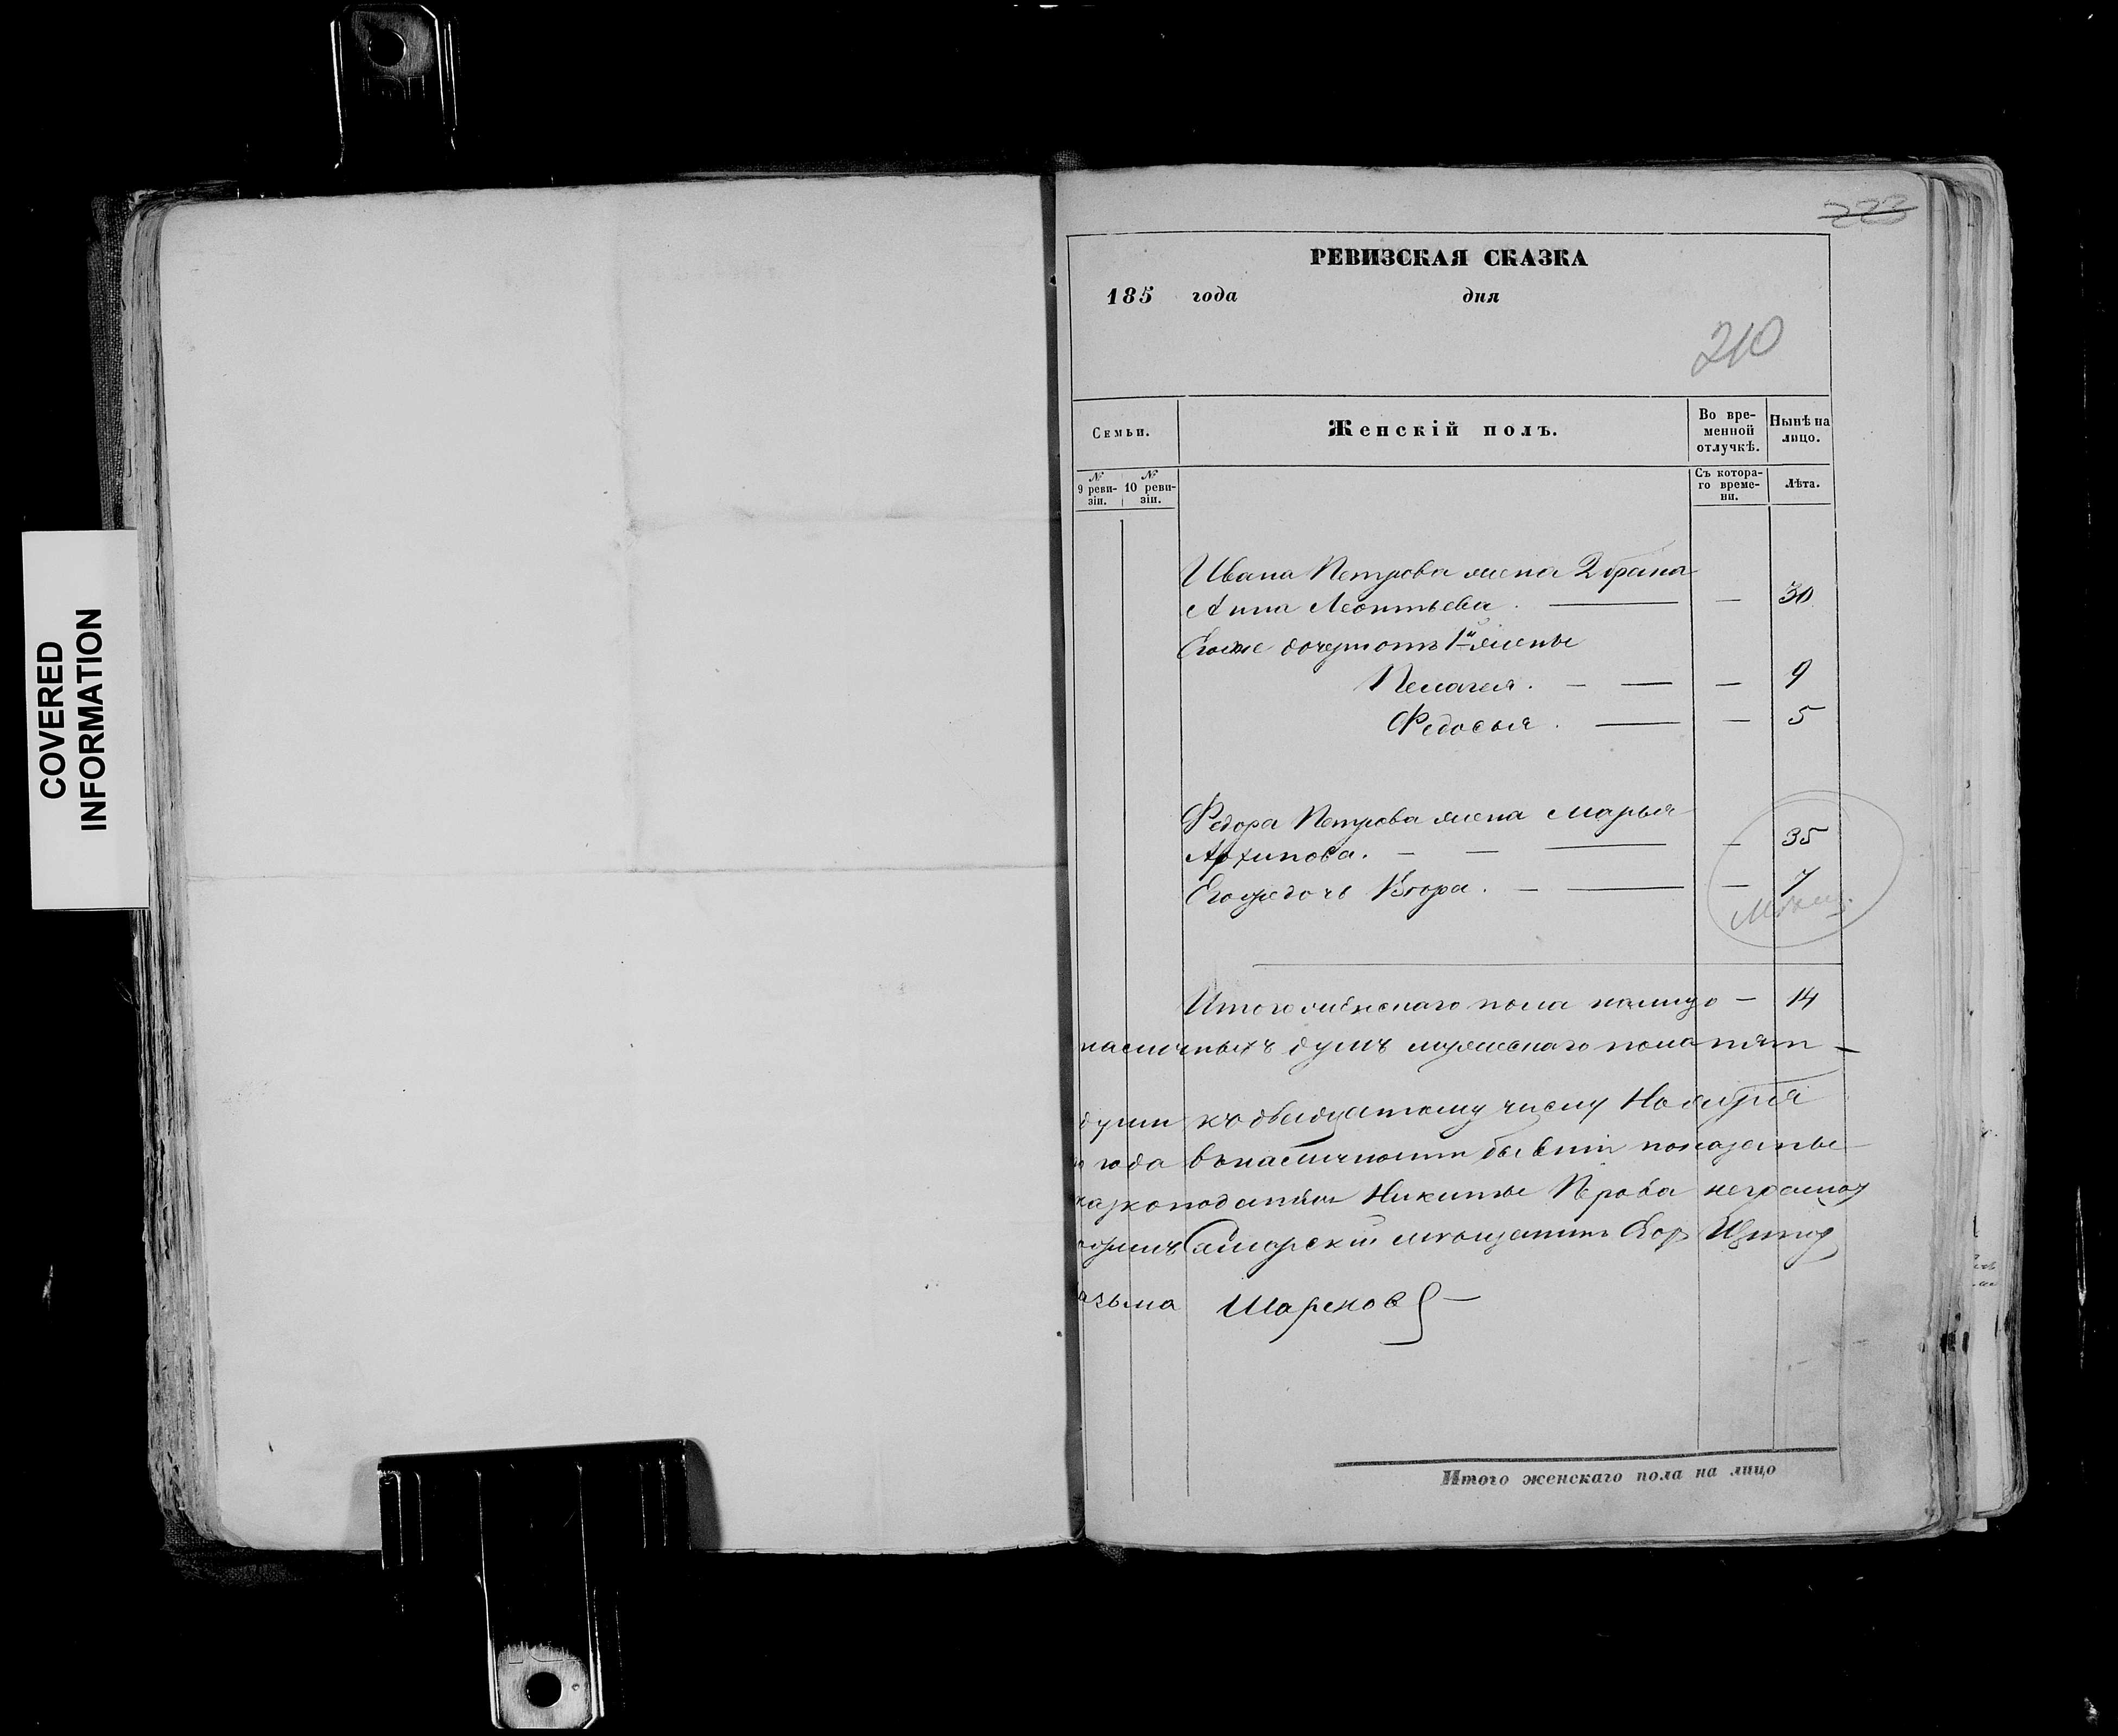 COVERED
INFORMATION
223
РЕВИЗСКАЯ СКАЗКА
185 года дня
210
Семьи. Женскій полъ. Во вре-
менной
отлучкѣ. Нынѣ на
лицо.
№
9 реви-
зіи. №
10 реви-
зіи. Съ котора-
го време-
ни. Лѣта.
Ивана Петрова жена 2 брака
Анна Леонтьева. — — 30
Егоже дочери отъ 1й жены
Пелагея. — — — 9
Федосья. — — 5
Федора Петрова жена Марья
Архипова. — — — — 35
Его же дочь — — — 7
Итого женскаго пола налицо — 14
наличныхъ душъ мужескаго пола
души къ двадцатому числу Ноября
года въ наличности
Никиты неграмот
Самарскій мѣщанинъ